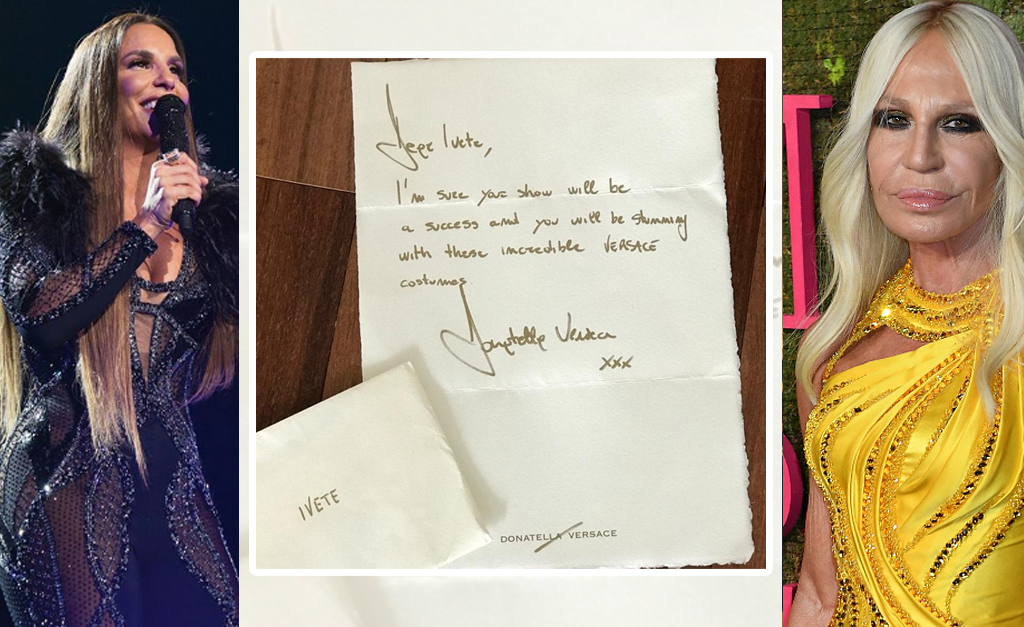 Dear Ivete,
I'm sure your show will be
a success and you will be stunning
with these incredible VERSACE
costumes
Donatella Versace
xxx
IVETE
DONATELLA VERSACE